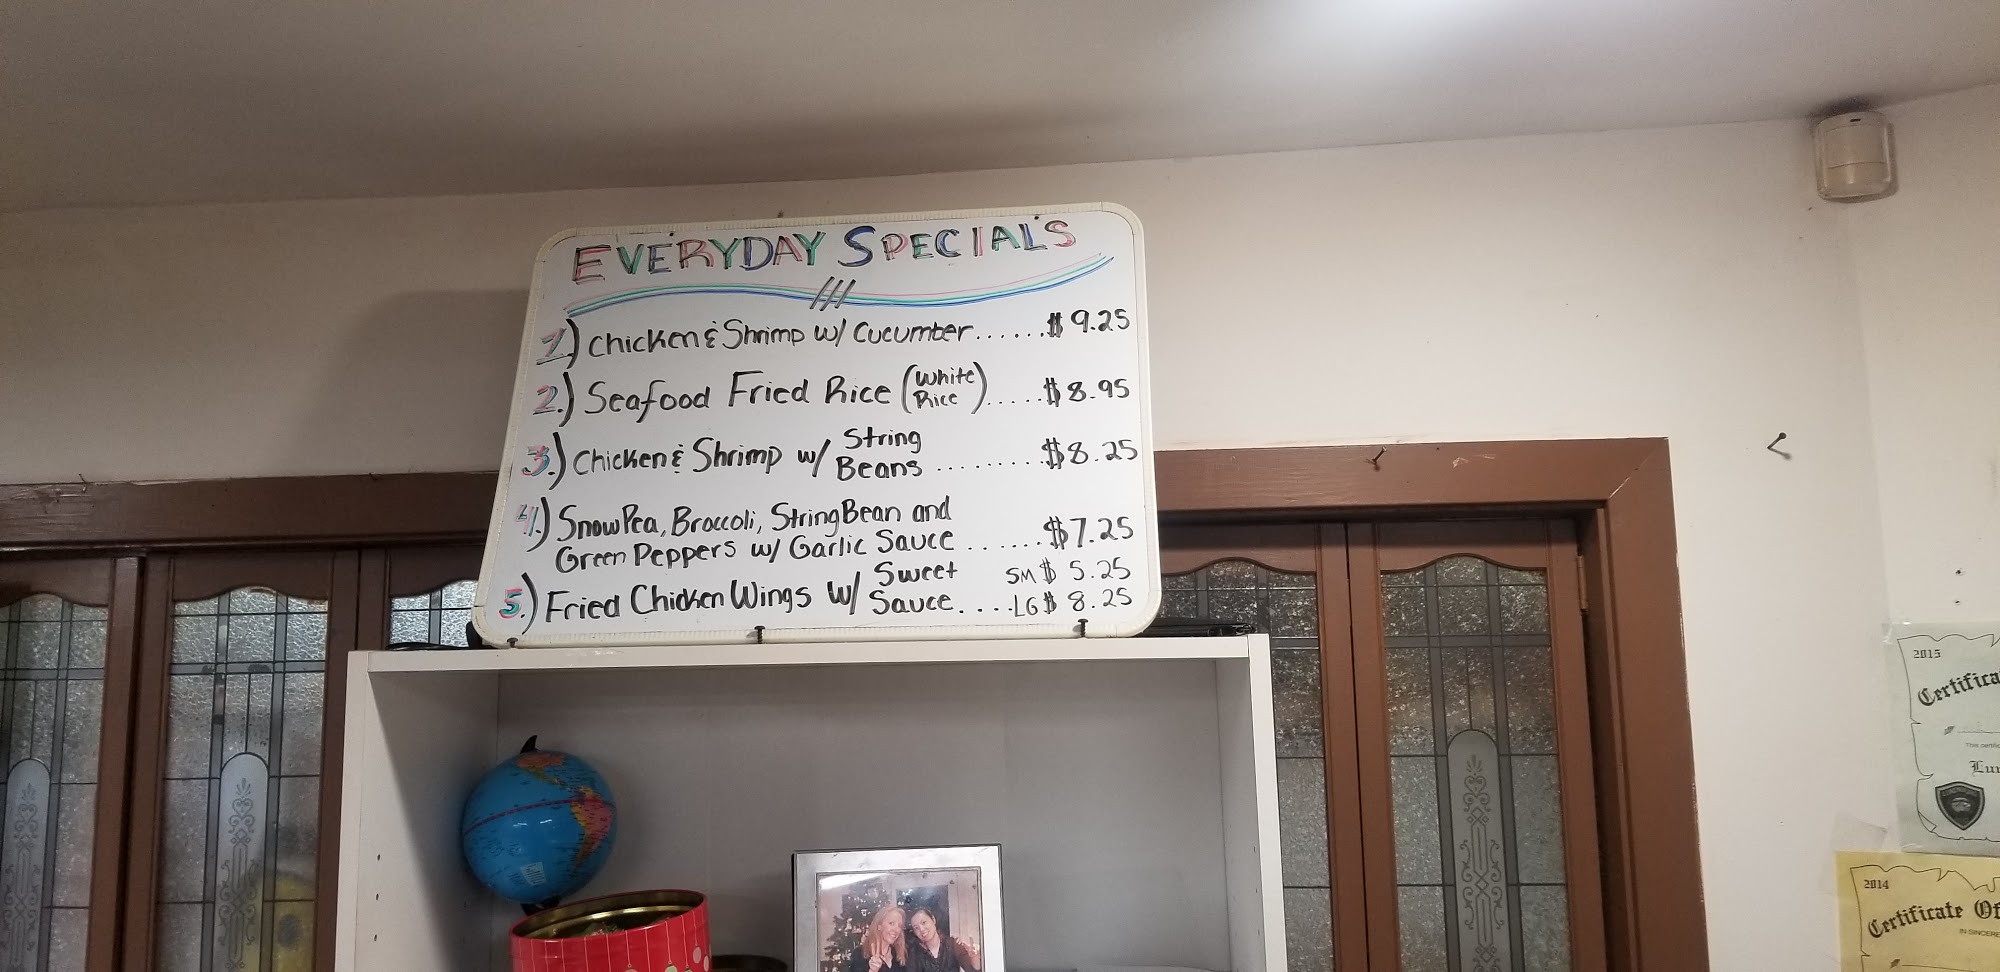 EVERYDAY SPECIALS
1.) Chicken & Shrimp w/ Cucumber......$9.25
2.) Seafood Fried Rice (White Rice).....$8.95
3.) Chicken & Shrimp w/ String Beans.........$8.25
4.) Snow Pea, Broccoli, String Bean and
Green Peppers w/ Garlic Sauce.......$7.25
5.) Fried Chicken Wings w/ Sweet Sauce.....SM $ 5.25
LG $ 8.25
2015
Certifica
2014
Certificate Of
IN SINCERE